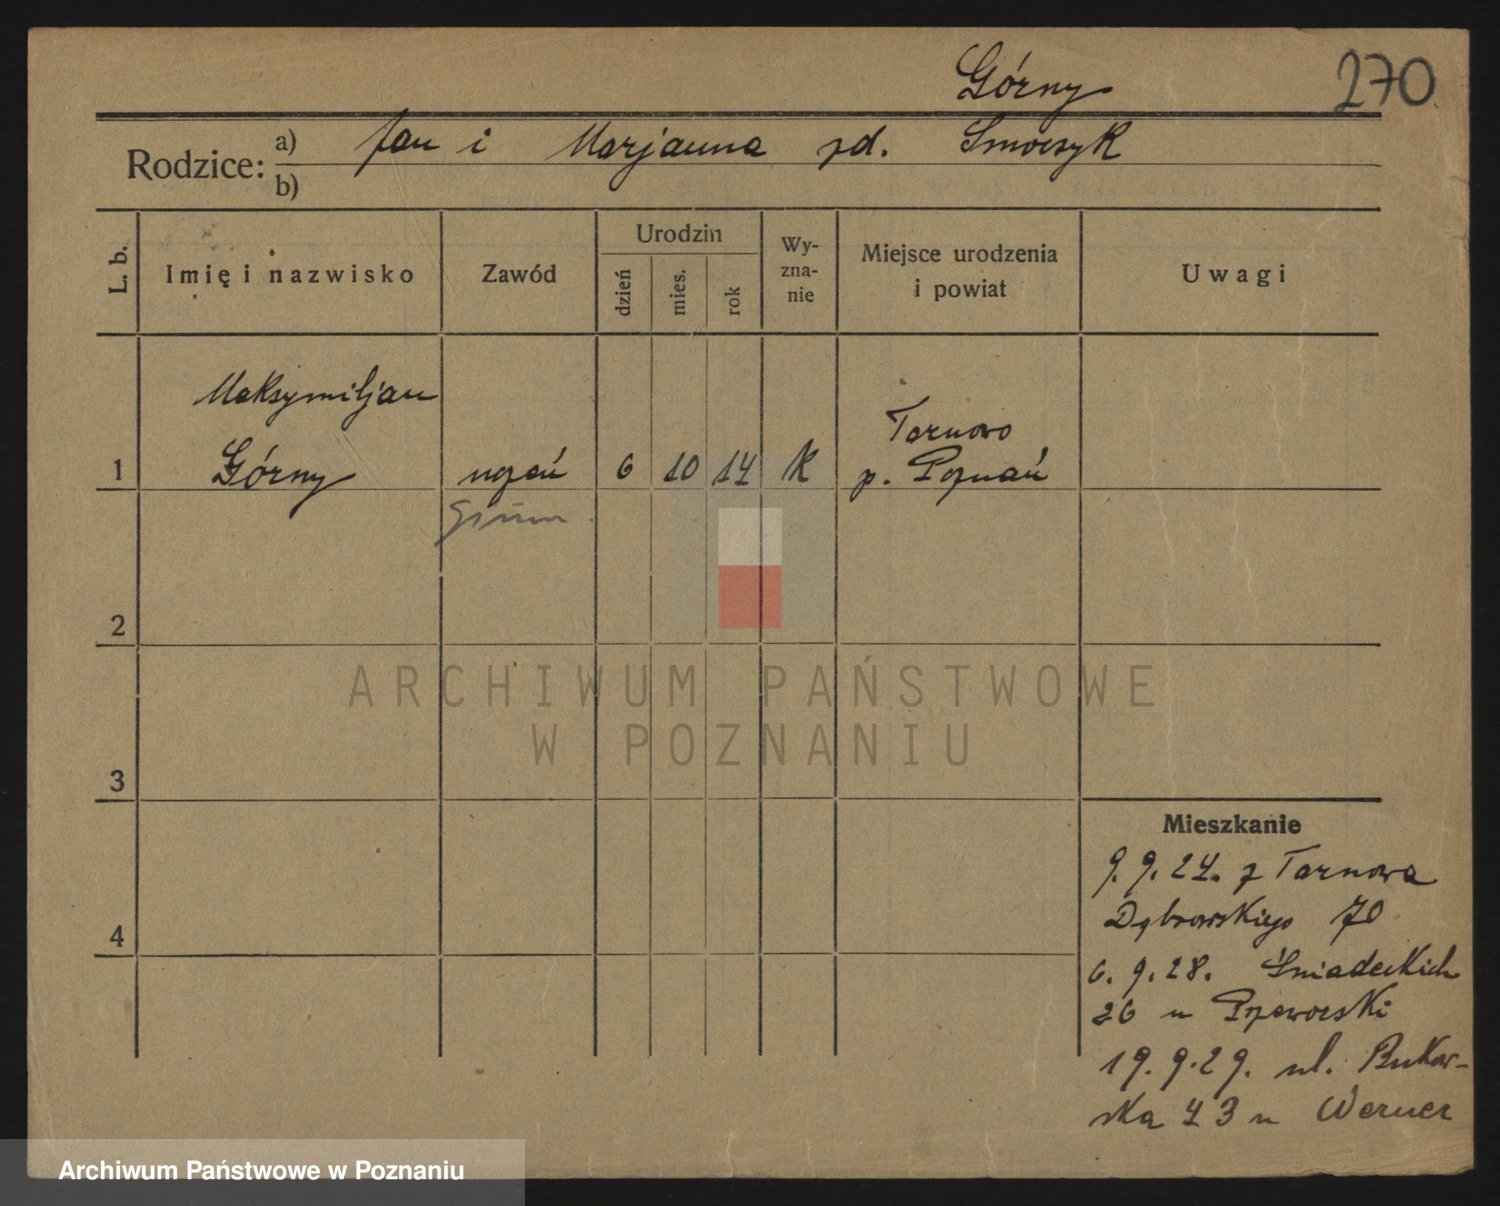 Górny
270
Rodzice: a) Jan i Marjanna zd. Smoczyk
b)
L. b.
Imię i nazwisko
Zawód
Urodzin
dzień
mies.
rok
Wy-
zna-
nie
Miejsce urodzenia
i powiat
Uwagi
Maksymiljan
Tarnowo
1 Górny uczeń 6 10 14 K p. Poznań
gimn
2
ARCHIWUM PAŃSTWOWE
W POZNANIU
3
Mieszkanie
9.9.24. z Tarnowa
Dąbrowskiego 70
4
6.9.28. Śniadeckich
26 u Przeworski
19.9.29. ul. Bukow-
ska 43 u Werner
Archiwum Państwowe w Poznaniu